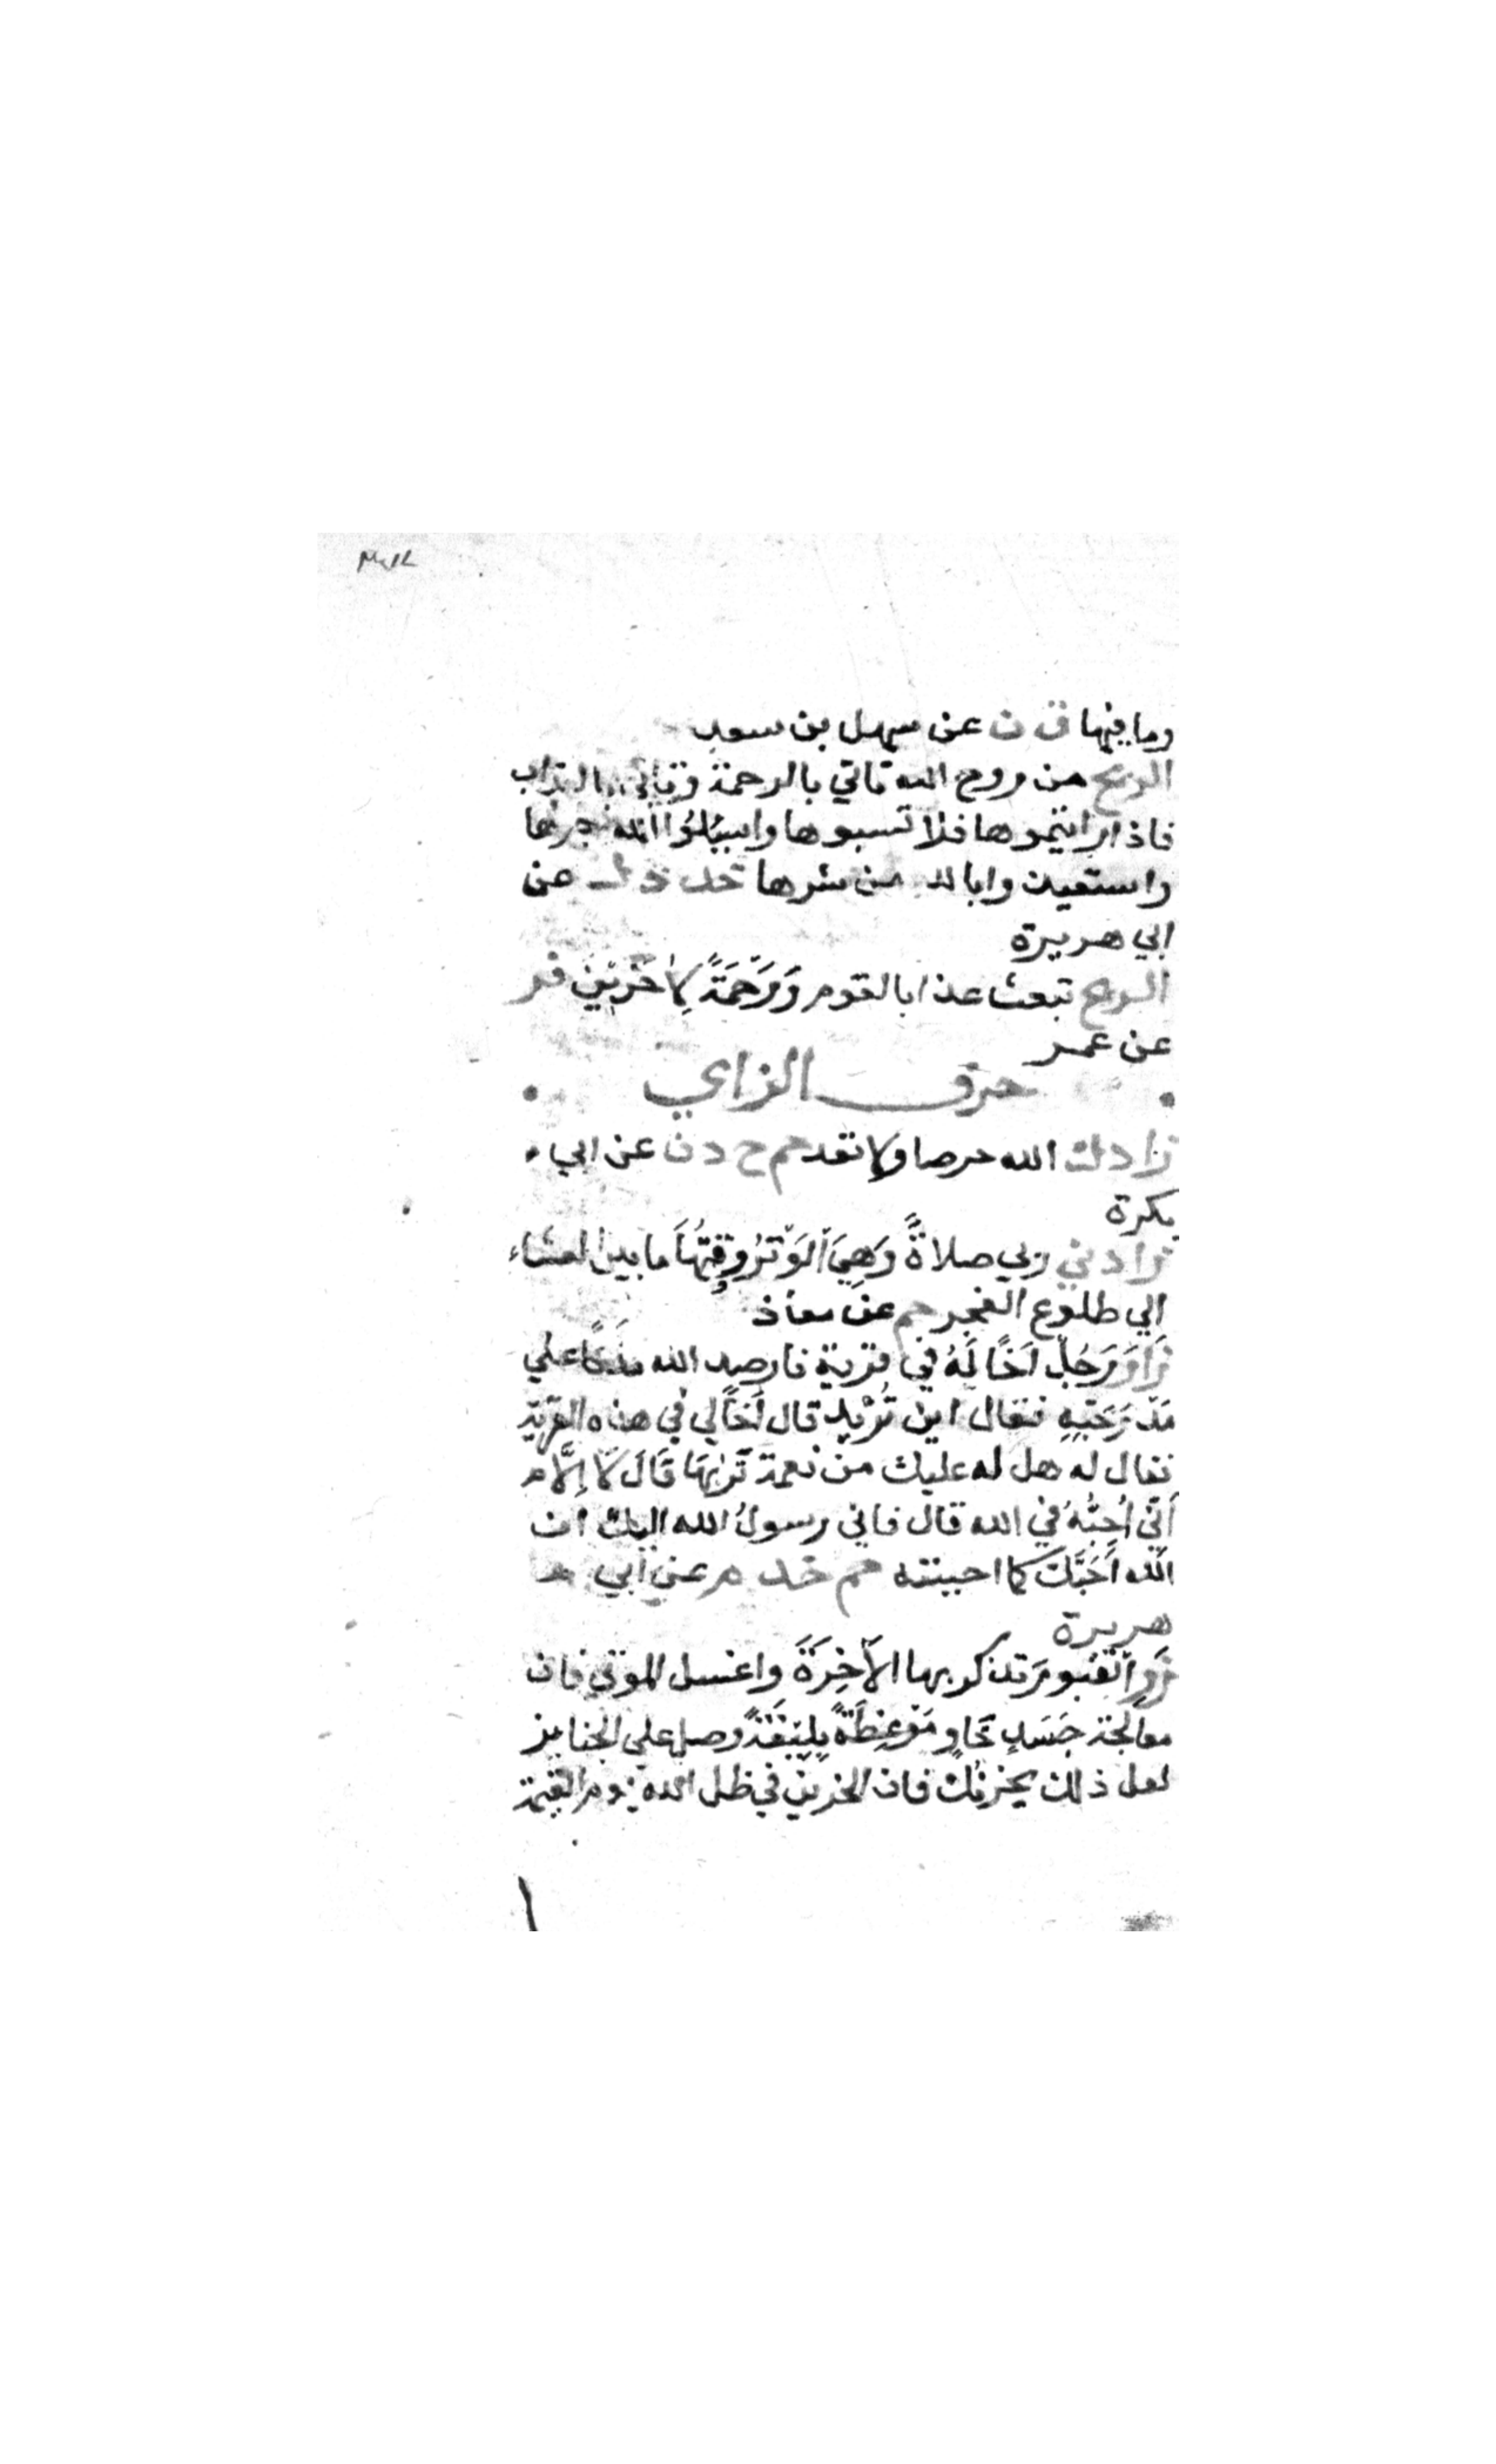 وما فيها ق ن عن سهل بن سعد
الريح من روح الله تاتي بالرحمة وتاتي بالعذاب
فاذا رايتموها فلا تسبوها واسئلوا الله خيرها
واستعيذوا بالله من شرها خد د ك عن
ابي هريرة
الريح تبعث عذابا لقوم وَرَحْمَةً لِاٰخَرِيْنَ فر
عن عمر
حرف الزاي
زادك الله حرصا ولا تعد حم خ د ن عن ابي
بكرة
زادني ربي صلاةً وَهِيَ الوَتْرُ وقتُهَا ما بين العشاء
الي طلوع الفجر حم عن معاذ
زَارَ رَجُلٌ اَخًا لَهُ في قرية فارصد الله ملكًا علي
مَدْرَجَتِهِ فقال اين تُرِيْد قال اَخًا لي في هذه القرية
فقال له هل له عليك من نعمة تَرُبُّهَا قَالَ لَا اِلَّا
اَنِّي اُحِبُّهُ في الله قال فاني رسولُ الله اليك ان
الله اَحَبَّكَ كما احببته حم خد م عن ابي
هريرة
زُرِ القبور تذكر بها الاَخِرَةَ واغسل الموتي فان
معالجة جَسَدٍ خَاوٍ مَوْعِظَةٌ بَلِيْغَةٌ وصل علي الجنايز
لعل ذلك يحزنُك فان الحزين في ظل الله يوم القيمة